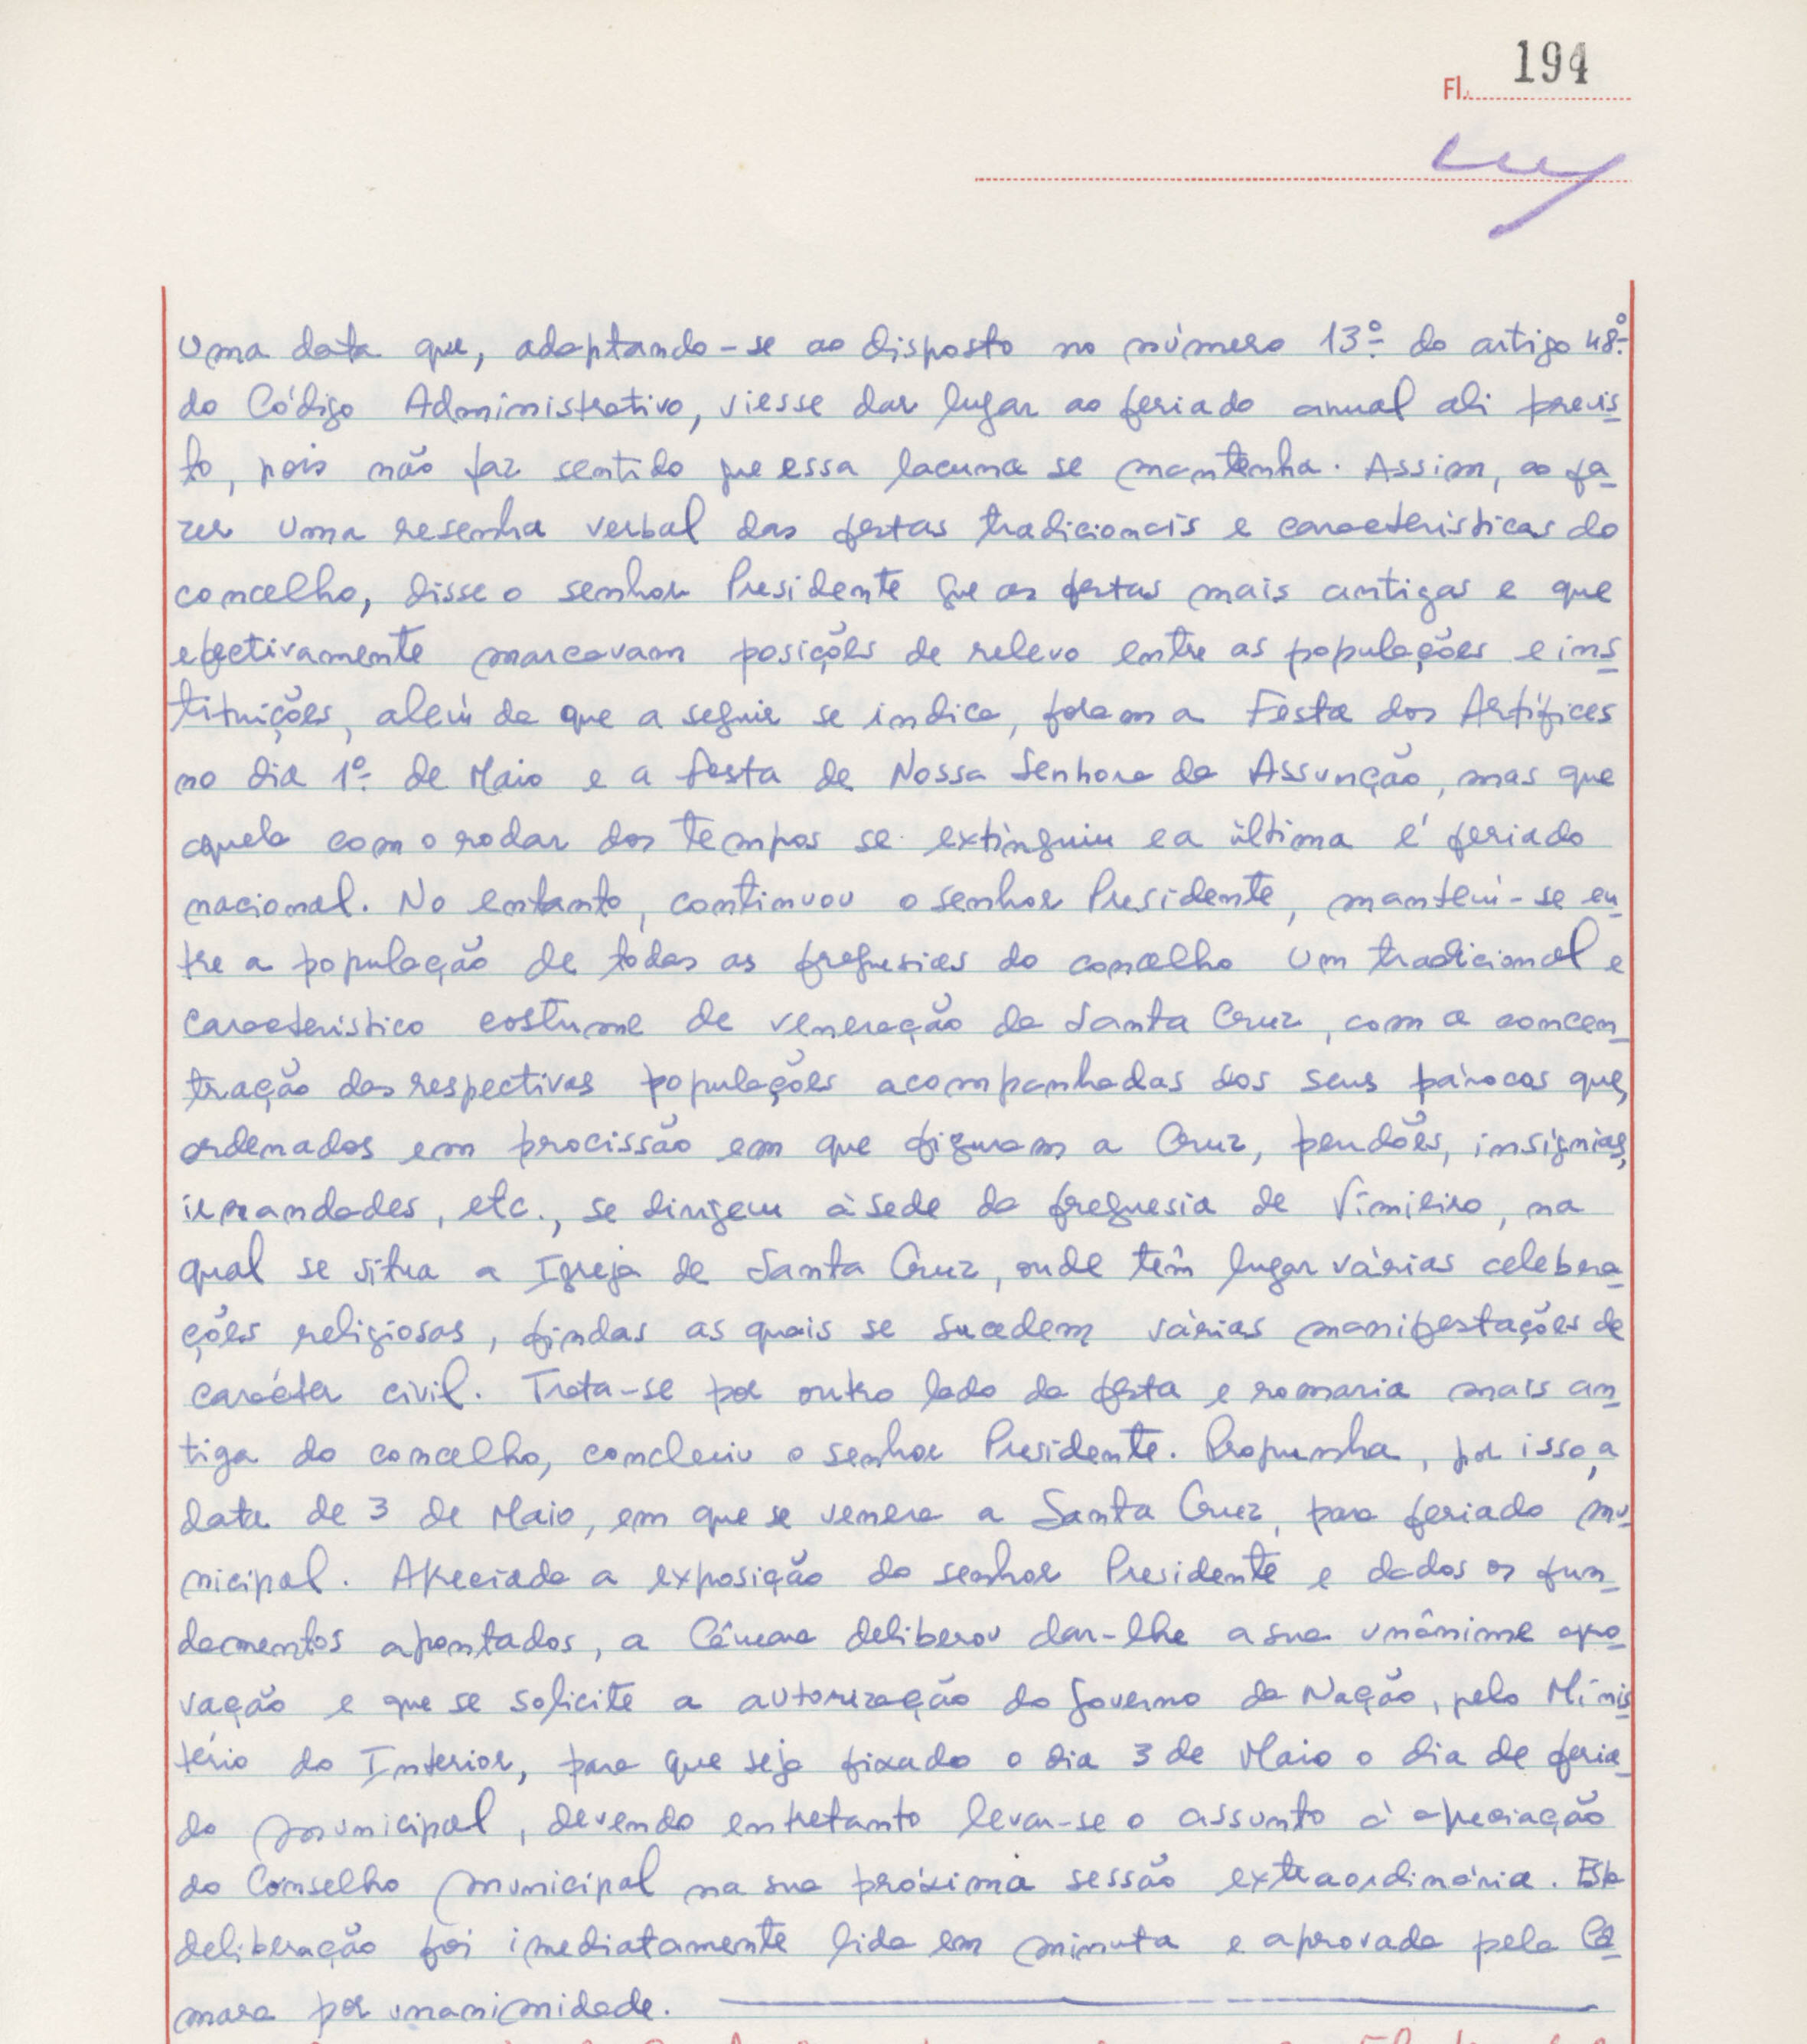 Fl. 194
uma data que, adaptando-se ao disposto no número 13º do artigo 48º
do Código Administrativo, viesse dar lugar ao feriado anual ali previs
to, pois não faz sentido que essa lacuna se mantenha. Assim, ao fa
zer uma resenha verbal das festas tradicionais e caracteristicas do
concelho, disse o senhor Presidente que as festas mais antigas e que
efectivamente marcavam posições de relevo entre as populações e ins
tituições, além da que a seguir se indica, foram a Festa dos Artífices
no dia 1º de Maio e a festa de Nossa Senhora da Assunção, mas que
aquela com o rodar dos tempos se extinguiu e a última é feriado
nacional. No entanto, continuou o senhor Presidente, mantém-se en
tre a população de todas as freguesias do concelho um tradicional e
caracteristico costume de veneração da Santa Cruz, com a concen
tração das respectivas populações acompanhadas dos seus párocos que,
ordenados em procissão em que figuram a Cruz, pendões, insígnias,
irmandades, etc., se dirigem à sede da freguesia de Vimieiro, na
qual se situa a Igreja de Santa Cruz, onde têm lugar várias celebra
ções religiosas, findas as quais se sucedem várias manifestações de
carácter civil. Trata-se por outro lado da festa e romaria mais an
tiga do concelho, concluiu o senhor Presidente. Propunha, por isso, a
data de 3 de Maio, em que se venera a Santa Cruz, para feriado mu
nicipal. Apreciada a exposição do senhor Presidente e dados os fun
damentos apontados, a Câmara deliberou dar-lhe a sua unânime apro
vação e que se solicite a autorização do Governo da Nação, pelo Minis
tério do Interior, para que seja fixado o dia 3 de Maio o dia de feria
do municipal, devendo entretanto levar-se o assunto à apreciação
do Conselho municipal na sua próxima sessão extraordinária. Esta
deliberação foi imediatamente lida em minuta e aprovada pela Câ
mara por unanimidade.